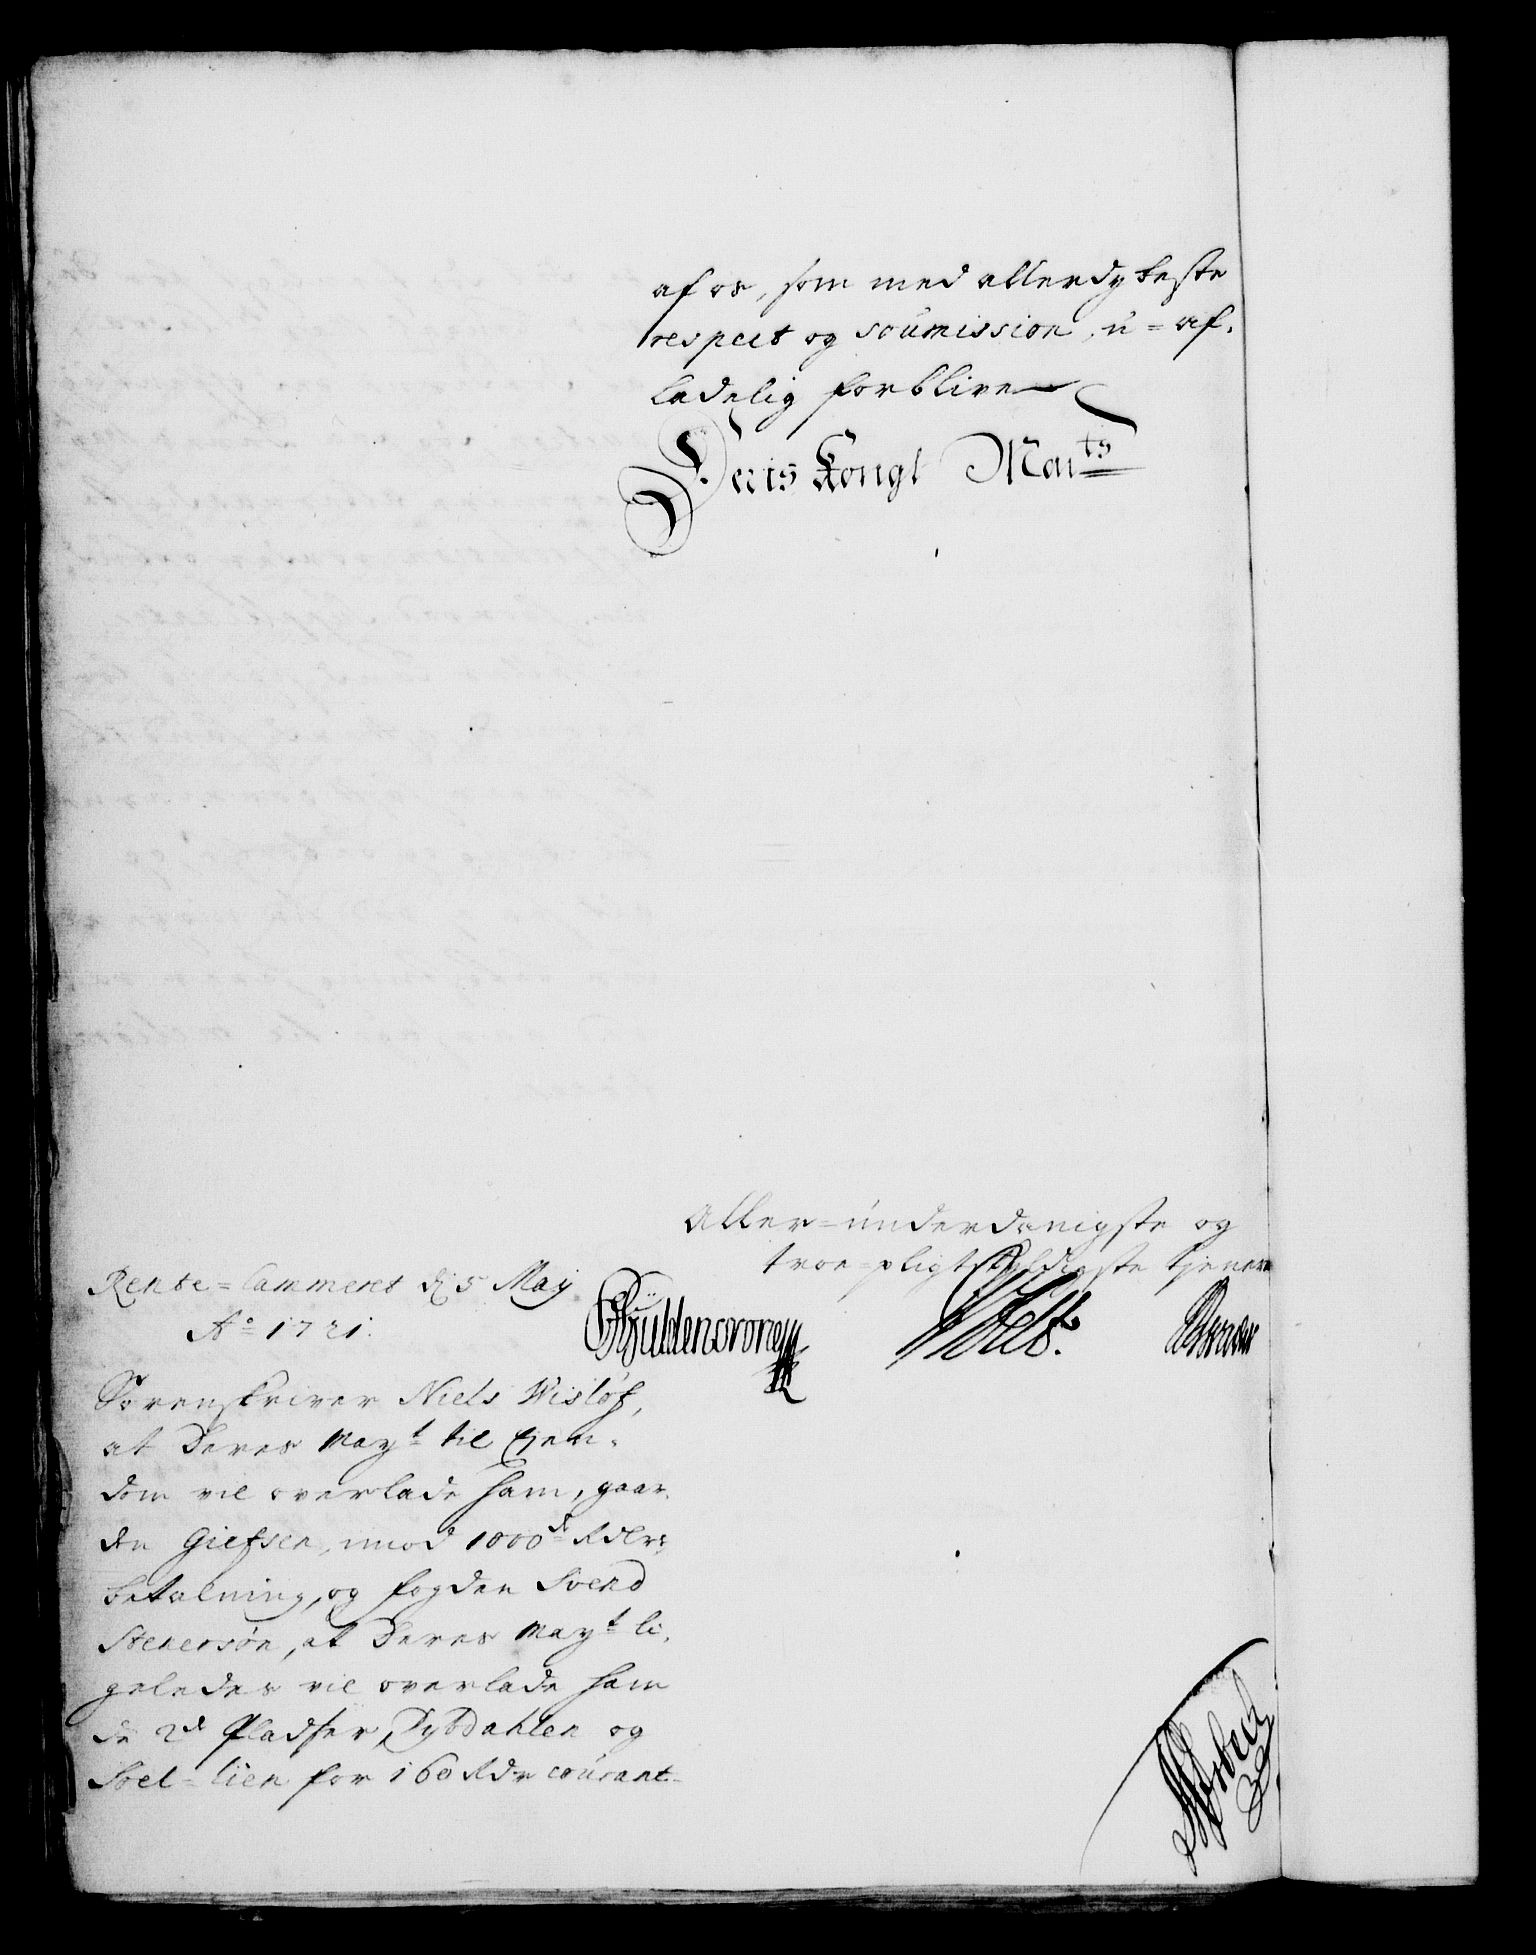 af os, som med allerdybeste
respect og soumission, u=af-
ladelig forblive
Deris Kongl Mai^ts
Aller=underdanigste og
troe=pligtskyldigste tjenere
Rente=Cammeret d 5 May
A° 1721.
Güldencrone
Sorenskriver Niels Wisløf,
at Deres May^t til Ejen-
dom vil overlade ham, gaar-
den Giefsen, imod 1000^de Rdlrs
betalning, og fogden Svend
Stenersøn, at Deres May^t li-
geledes vil overlade ham
de 2^de Pladser, Dybdahlen og
Soel=lien for 160 Rdr courant